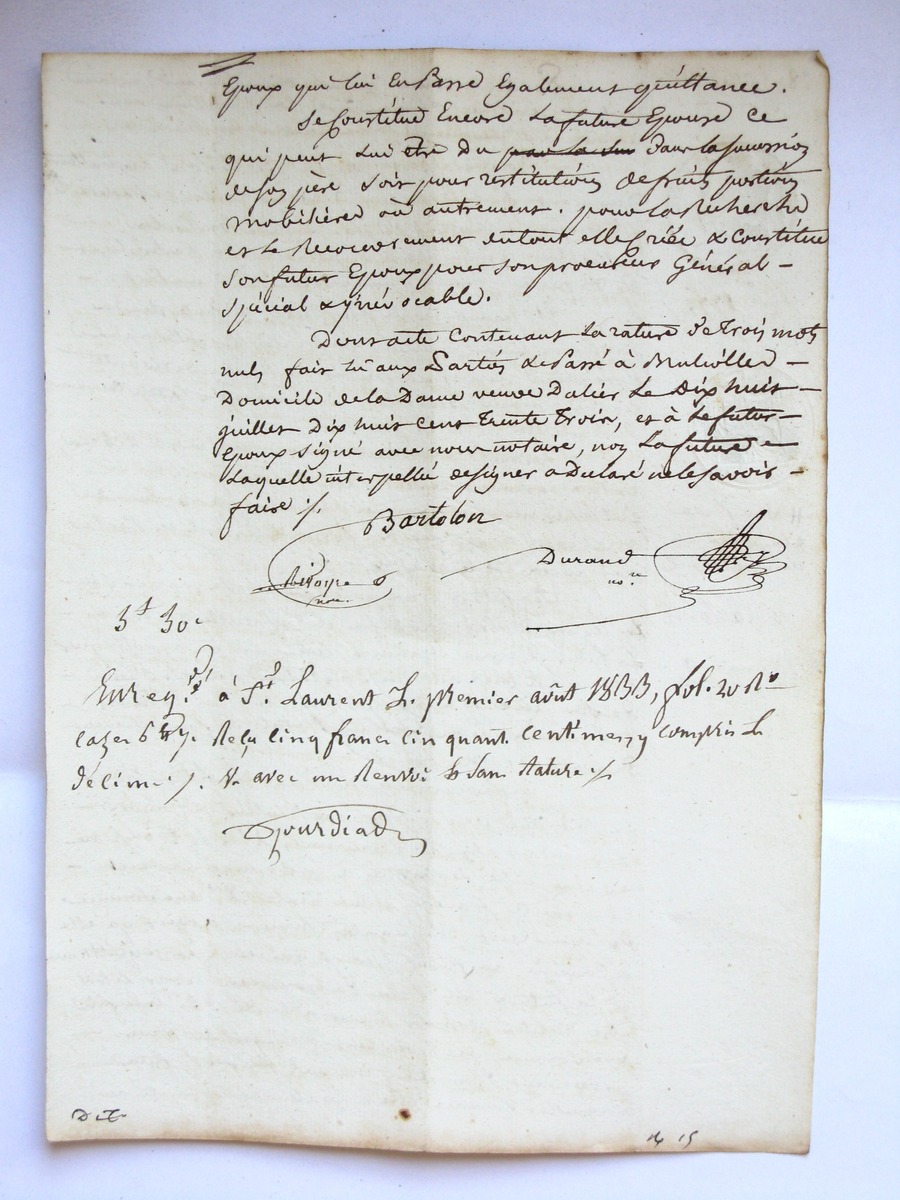 Epoux qui lui En Passe Egalement quittance.
Se Constitue Encore La future Epouse ce
qui peut Lui être Du par la su Dans la succession
de son père soit pour restitution de fruits portion
mobilière ou autrement. pour La Recherche
et Le Recouvrement du tout elle Crée & Constitue
Son futur Epoux pour son procureur Général –
spécial & yrévocable.
Dont acte Contenant La rature de Trois mots
nuls, fait Lu aux Parties & Passé à –
Domicile de La Dame veuve Dalier Le Dix huit –
juillet Dix huit Cent Trente Trois, et à Le futur –
Epoux signé avec nous notaire, non La future –
Laquelle interpellée de signer a Déclaré ne le Savoir –
faire ./.
Bartolon
nre.
Durand
nore
5f 50c
Enregré à St. Laurent Le premier août 1833, fol. 20 Ro
cazes 6 & 7. Reçu Cinq francs Cinquante Centimes y compris Le
décime ./. V. avec un Renvoi & Sans Rature ./.
Gourdiad
15